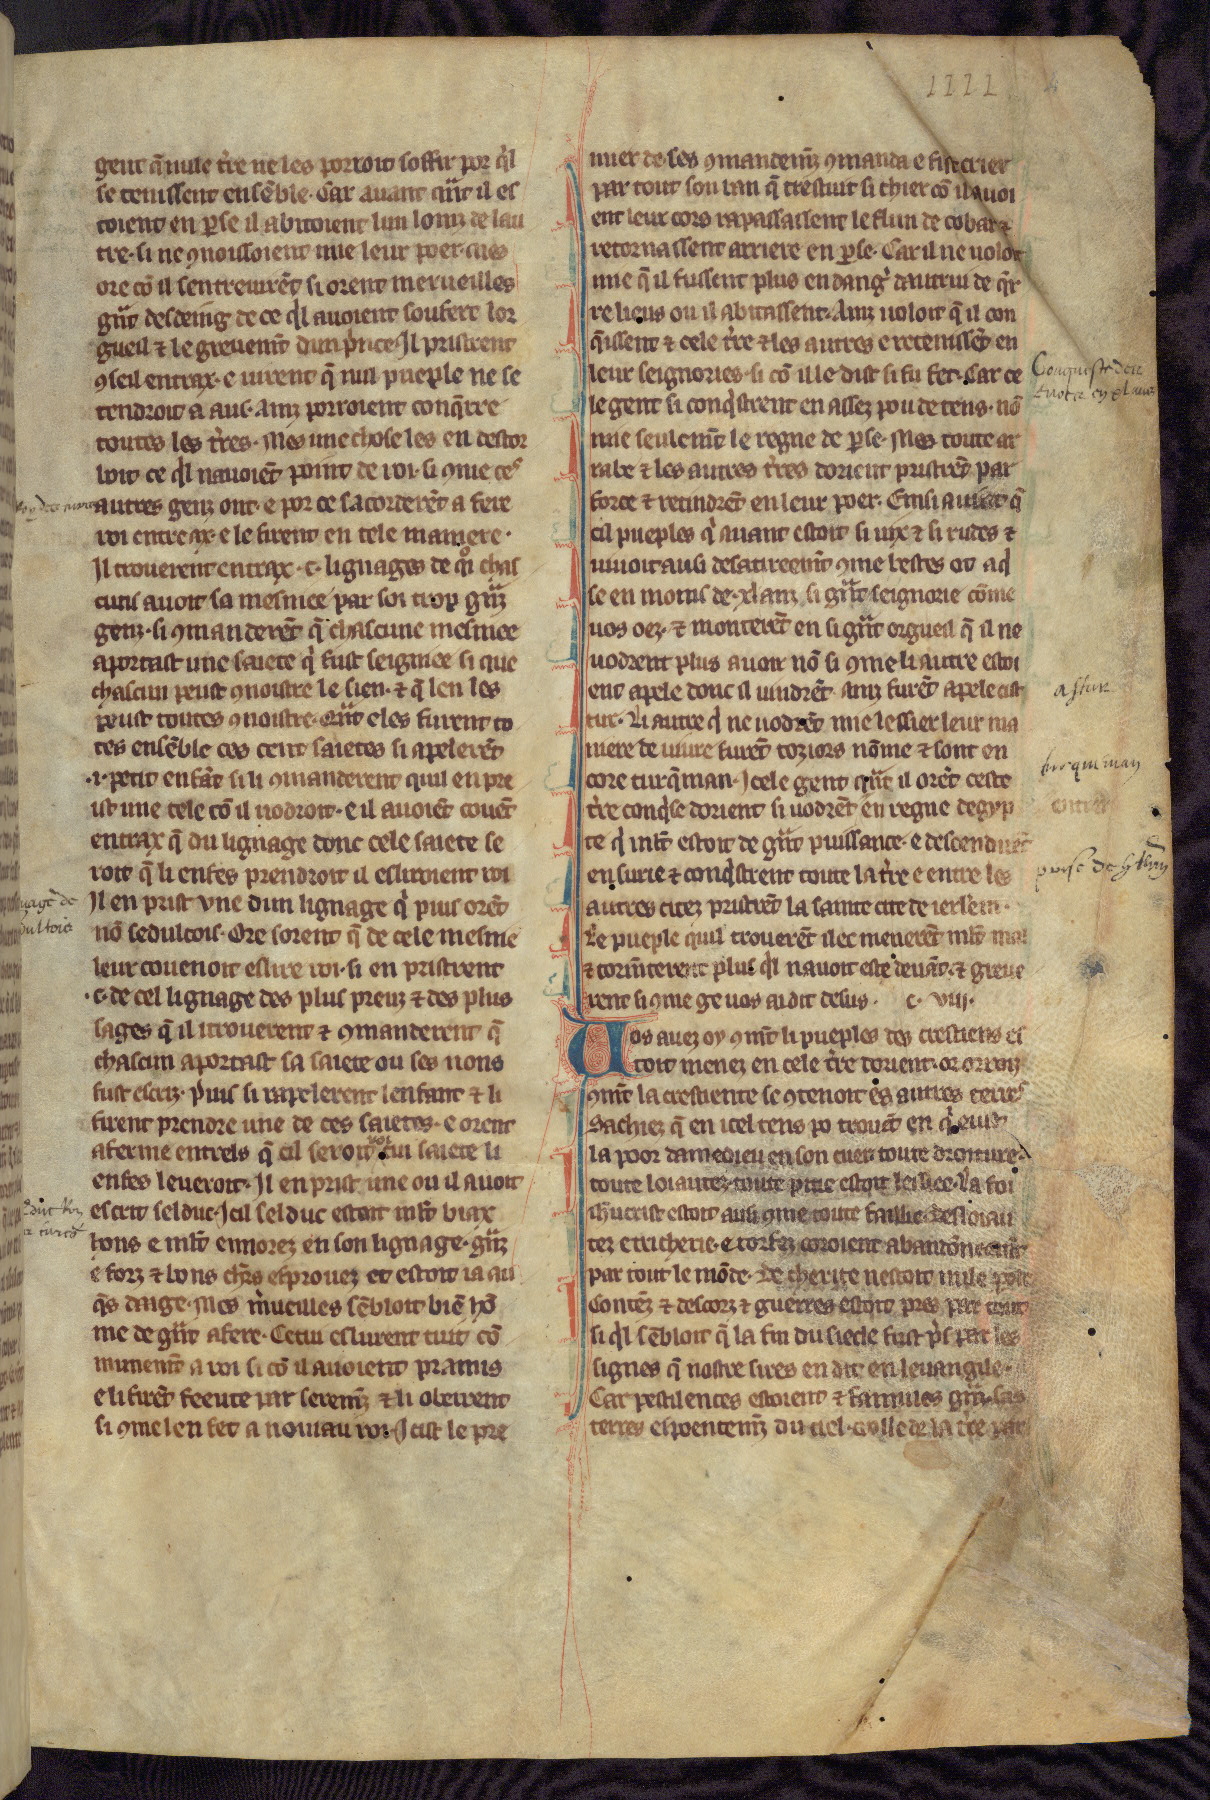 1111
gent q̄ nule t̄re ne les porroit soffrir por q̇l
se tenissent ensēble. Car auant qn̄t il es
toient en ꝑse il abitoient lun loinz de lau
tre. si ne ꝯnoissoient mie leur poer. mes
ore cō il sentreuirēt si orent merueilles
gn̄t desdeing de ce q̇l auoient soufert lor
gueil ⁊ le greuemt̄ dun p̍nce. Il pristrent
ꝯseil entrax. e uirent q̄ nus pueple ne se
tendroit a aus. Ainz porroient conq̄rre
toutes les t̄res. Mes une chose les en destor
boit ce q̇l nauoiēt point de roi. si ꝯme ces
autres genz ont. e por ce sacorderēt a fere
roi entre ax. e le firent en tele maniere.
Il trouerent entrax .c. lignages de q̊i chas
cuns auoit sa mesniee par soi trop gn̄z
genz. si ꝯmanderēt q̄ chascune mesniee
aportast une saiete q̇ fust seigniee si que
chascun peust ꝯnoistre le sien. ⁊ q̄ len les
peust toutes ꝯnoistre. Qn̄t eles furent to
tes ensēble ces cent saietes si apelerēt
.i. petit enfāt si li ꝯmanderent quil en pre
ist une tele cō il uodroit. e il auoiēt couēt
entrax q̄ du lignage donc cele saiete se
roit q̄ li enfes prendroit il esliroient roi
Il en prist vne dun lignage q̇ puis orēt
nō sedultois. Ore sorent q̄ de cele mesme
leur couenoit eslire roi. si en pristrent
.c. de cel lignage des plus preuz ⁊ des plus
sages q̄ il i trouerent ⁊ ꝯmanderent q̄
chascun aportast sa saiete ou ses nons
fust escriz. Puis si rapelerent lenfant ⁊ li
firent prendre une de ces saietes. e orent
aferme entrels q̄ cil seroit roi cui saiete li
enfes leueroit. Il en prist une ou il auoit
escrit selduc. Icil selduc estoit ml̄t biax
hons e ml̄t ennorez en son lignage. gn̄z
e forz ⁊ bons chr̄s esprouez et estoit ia au
q̄s daage. Mes m̍ueilles sēbloit biē hō
me de gn̄t afere. Cetui eslurent tuit cō
munemt̄ a roi si cō il auoient pramis
e li firēt feeute par seremz̄ ⁊ li obeirent
si ꝯme len fet a nouiau roi. Icist le pre
mier de ses ꝯmandemz̄ ꝯmanda e fist crier
par tout son ban q̄ trestuit si chier cō il auoi
ent leur cors rapassassent le flun de cobar ⁊
retornassent arriere en ꝑse. Car il ne uoloit
mie q̄ il fussent plus en dang̍ dautrui de q̄r
re lieus ou il abitassent. Ainz uoloit q̄ il con
q̄issent ⁊ cele t̄re ⁊ les autres e retenissēt en
leur seignories. si cō il le dist si fu fet. Car ce
le gent si conq̇strent en assez pou de tens. nō
mie seulemt̄ le regne de ꝑse. Mes toute ar
rabe ⁊ les autres t̄res dorient pristrēt par
force ⁊ retindrēt en leur poer. Einsi auint q̄
cil pueples q̇ auant estoit si uix ⁊ si rudes ⁊
uiuoit ausi desatireemt̄ ꝯme bestes ot aq̇
se en moins de .xl. anz si gn̄t seignorie cōme
uos oez. ⁊ monterēt en si gn̄t orgueil q̄ il ne
uodrent plus auoir nō si ꝯme li autre estoi
ent apele donc il uindrēt. Ainz furēt apele cist
tur. Li autre q̇ ne uodrēt mie lessier leur ma
niere de uiure furēt toziors nōme ⁊ sont en
core turq̄man. Icele gent qn̄t il orēt ceste
t̄re conq̇se dorient si uodrēt en regne degyp
te q̇ ml̄t estoit de gn̄t puissance. e descendirēt
en surie ⁊ conq̇strent toute la t̄re e entre les
autres citez pristrēt la sainte cite de ierl̄em.
Le pueple quil trouerēt ilec menerēt ml̄t mal
⁊ tormenterent plus q̇l nauoit este deuāt. ⁊ greue
rent si ꝯme ge uos ai dit desus. c. viii.
Vos auez oy ꝯmt̄ li pueples des crestiens es
toit menez en cele t̄re dorient. or orroiz
ꝯmt̄ la crestiente se ꝯtenoit es autres terres
Sachiez q̄ en icel tens po trouāt en q̇ eust
la poor damedieu en son cuer. toute droiture.
toute loiautez. toute pitie estoit lessiee. La foi
ihucrist estoit ausi ꝯme toute faillie. Desloiau
tez e tricherie. e torfez coroient abandōneemt̄
par tout le mōde. De cherite nestoit mile poit
Contēz ⁊ descorz ⁊ guerres estoit pres par tout
si q̇l sēbloit q̄ la fin du siecle fust p̍s par les
signes q̄ nostre sires en dit en leuangile.
Car pestilences estoient ⁊ famines gn̄z sus
terres espoentemz̄ du ciel. crolle de la t̄re par
astur
turquman